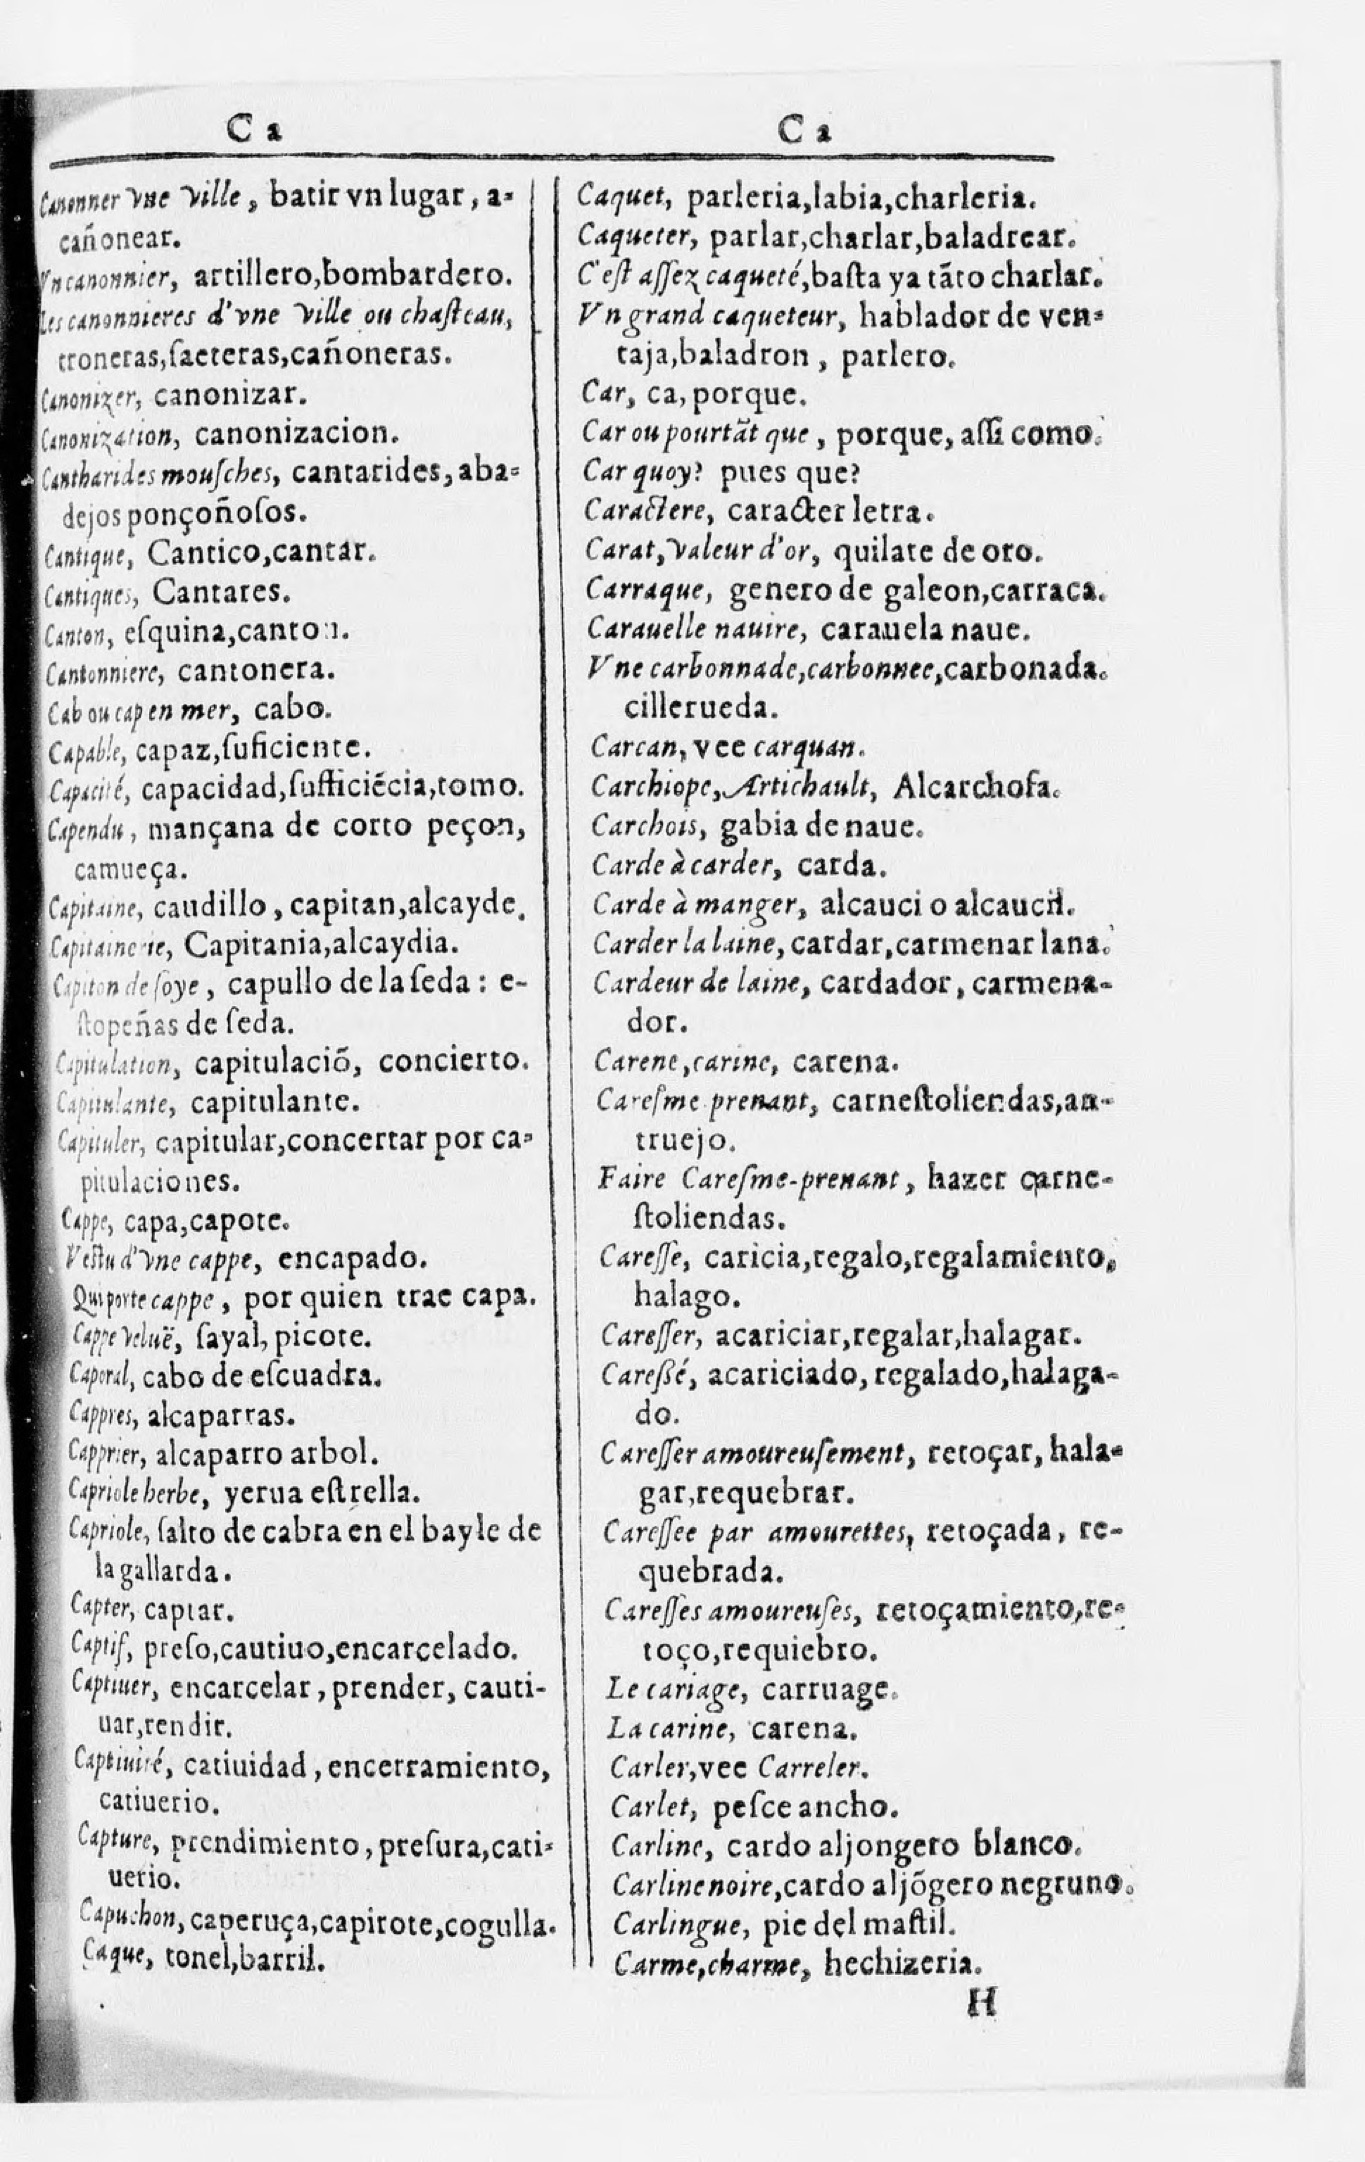 C a
Canonner vne ville, batir vn lugar, a-
cañonear.
Vn canonnier, artillero, bombardero.
Les canonnieres d'vne ville ou chasteau,
troneras, saeteras, cañoneras.
Canonizer, canonizar.
Canonization, canonizacion.
Cantharides mousches, cantarides, aba-
dejos ponçoñosos.
Cantique, Cantico, cantar.
Cantiques, Cantares.
Canton, esquina, canton.
Cantonniere, cantonera.
Cab ou cap en mer, cabo.
Capable, capaz, suficiente.
Capacité, capacidad, sufficiẽcia, tomo.
Capendu, mançana de corto peçon,
camueça.
Capitaine, caudillo, capitan, alcayde.
Capitainerie, Capitania, alcaydia.
Capiton de soye, capullo de la seda: e-
stopeñas de seda.
Capitulation, capitulaciõ, concierto.
Capitulante, capitulante.
Capituler, capitular, concertar por ca-
pitulaciones.
Cappe, capa, capote.
Vestu d'vne cappe, encapado.
Qui porte cappe, por quien trae capa.
Cappe veluë, sayal, picote.
Caporal, cabo de escuadra.
Cappres, alcaparras.
Capprier, alcaparro arbol.
Capriole herbe, yerua estrella.
Capriole, salto de cabra en el bayle de
la gallarda.
Capter, captar.
Captif, preso, cautiuo, encarcelado.
Captiuer, encarcelar, prender, cauti-
uar, rendir.
Captiuité, catiuidad, encerramiento,
catiuerio.
Capture, prendimiento, presura, cati-
uerio.
Capuchon, caperuça, capirote, cogulla.
Caque, tonel, barril.
C a
Caquet, parleria, labia, charleria.
Caqueter, parlar, charlar, baladrear.
C'est assez caqueté, basta ya tãto charlar.
Vn grand caqueteur, hablador de ven-
taja, baladron, parlero.
Car, ca, porque.
Car ou pourtãt que, porque, assi como.
Car quoy? pues que?
Caractere, caracter letra.
Carat, valeur d'or, quilate de oro.
Carraque, genero de galeon, carraca.
Carauelle nauire, carauela naue.
Vne carbonnade, carbonnee, carbonada.
cillerueda.
Carcan, vee carquan.
Carchiope, Artichault, Alcarchofa.
Carchois, gabia de naue.
Carde à carder, carda.
Carde à manger, alcauci o alcaucil.
Carder la laine, cardar, carmenar lana.
Cardeur de laine, cardador, carmena-
dor.
Carene, carine, carena.
Caresme prenant, carnestoliendas, an-
truejo.
Faire Caresme-prenant, hazer carne-
stoliendas.
Caresse, caricia, regalo, regalamiento,
halago.
Caresser, acariciar, regalar, halagar.
Caressé, acariciado, regalado, halaga-
do.
Caresser amoureusement, retoçar, hala-
gar, requebrar.
Caressee par amourettes, retoçada, re-
quebrada.
Caresses amoureuses, retoçamiento, re-
toço, requiebro.
Le cariage, carruage.
La carine, carena.
Carler, vee Carreler.
Carlet, pesce ancho.
Carline, cardo aljongero blanco.
Carline noire, cardo aljõgero negruno.
Carlingue, pie del mastil.
Carme, charme, hechizeria.
H